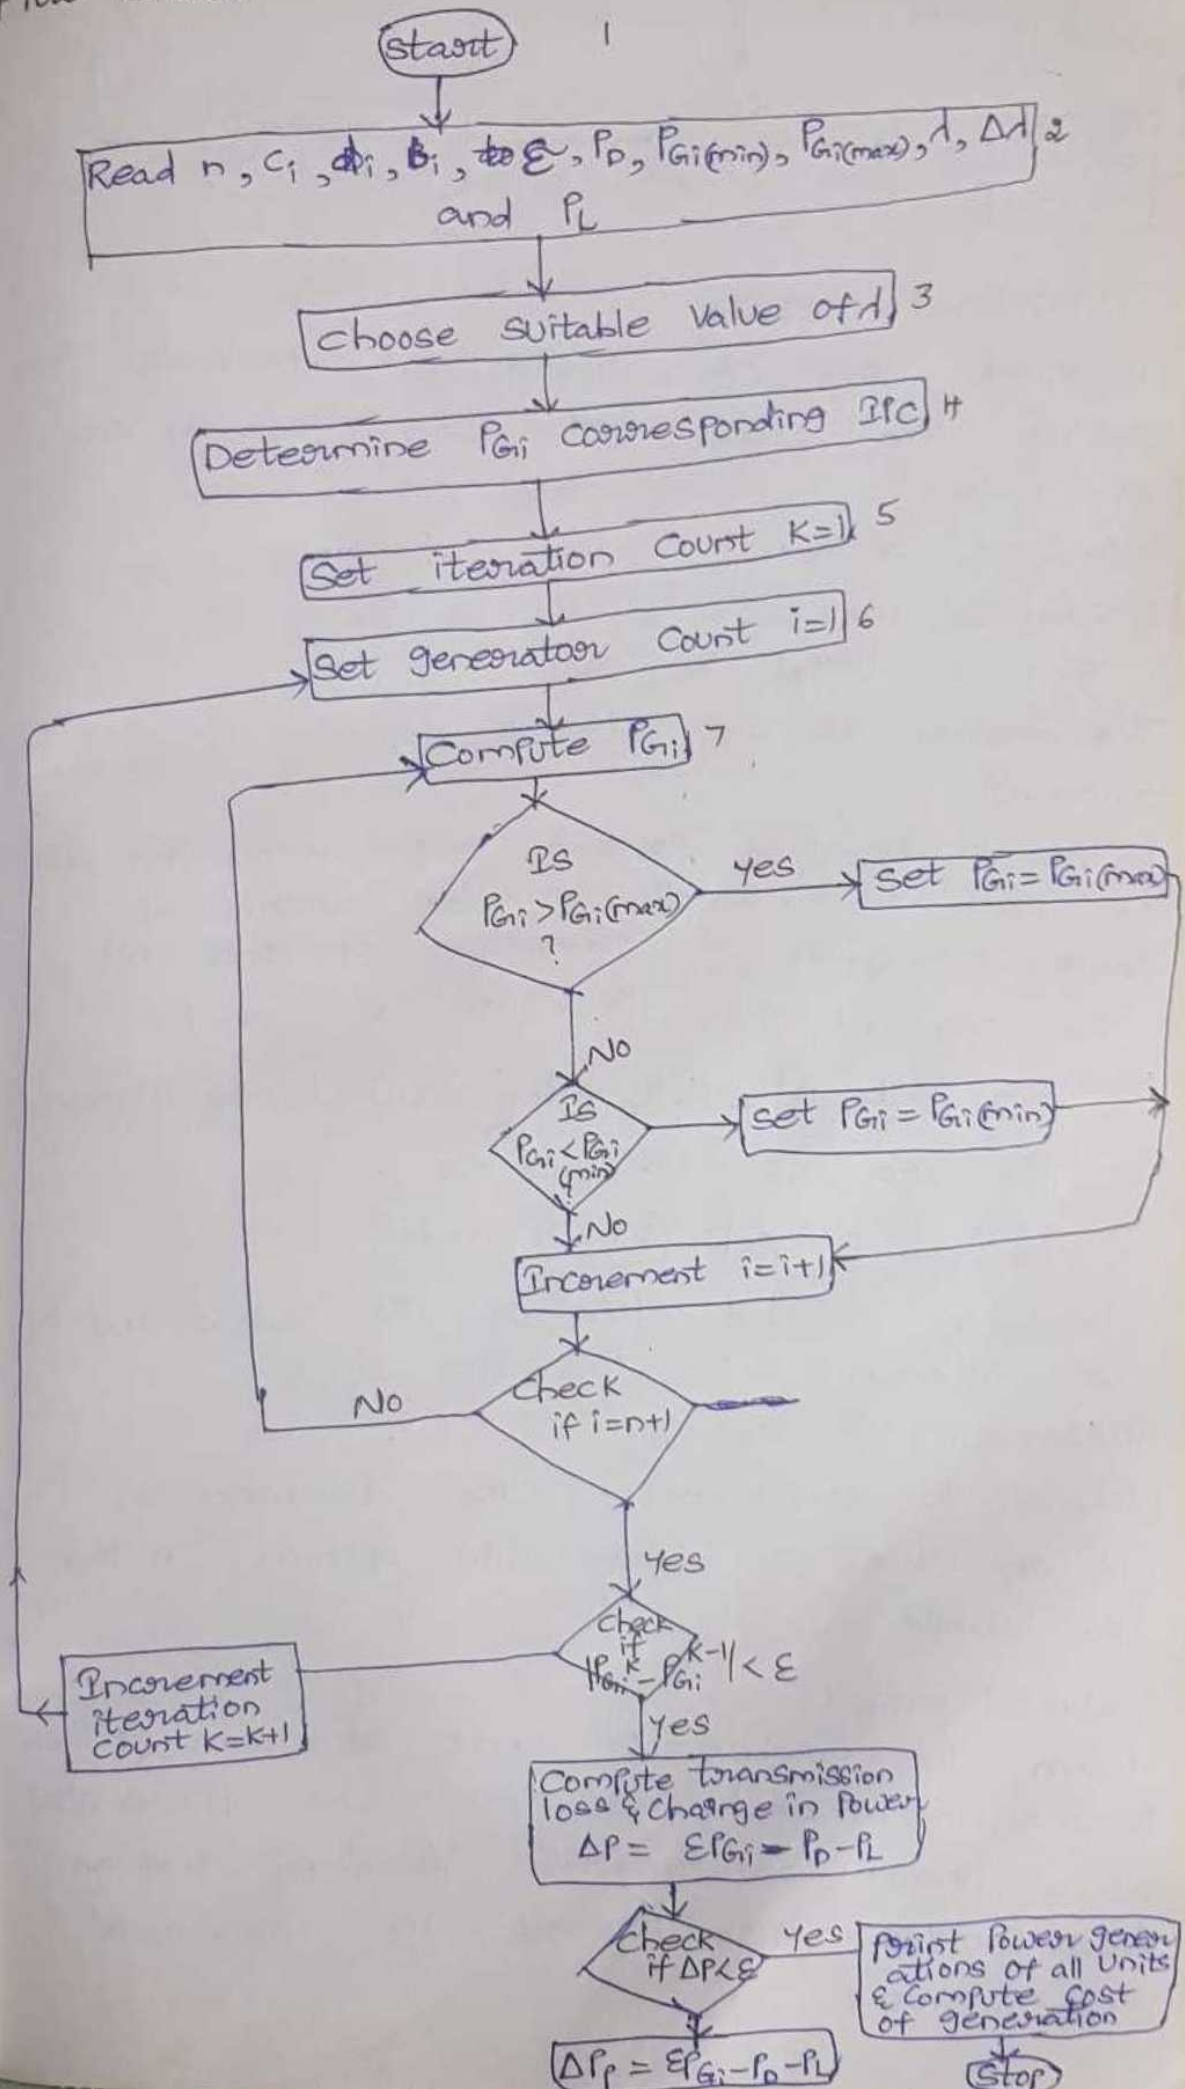 Start 1
Read n, Ci, di, bi, ε, PD, PGi(min), PGi(max), λ, Δλ 2
and PL
choose suitable value of λ 3
Determine PGi corresponding IPC 4
Set iteration Count K=1 5
Set generator count i=1 6
Compute PGi 7
IS
PGi > PGi(max)
?
yes
set PGi = PGi(max)
No
IS
PGi < PGi
(min)
?
set PGi = PGi(min)
No
Increment i=i+1
Check
if i=n+1
No
yes
Check
if
|PGi^K - PGi^K-1| < ε
Increment
iteration
count K=K+1
yes
Compute transmission
loss & change in Power
ΔP = ΣPGi - PD - PL
Check
if ΔP<ε
yes
print Power gener
ations of all units
& compute cost
of generation
ΔPP = ΣPGi - PD - PL
Stop